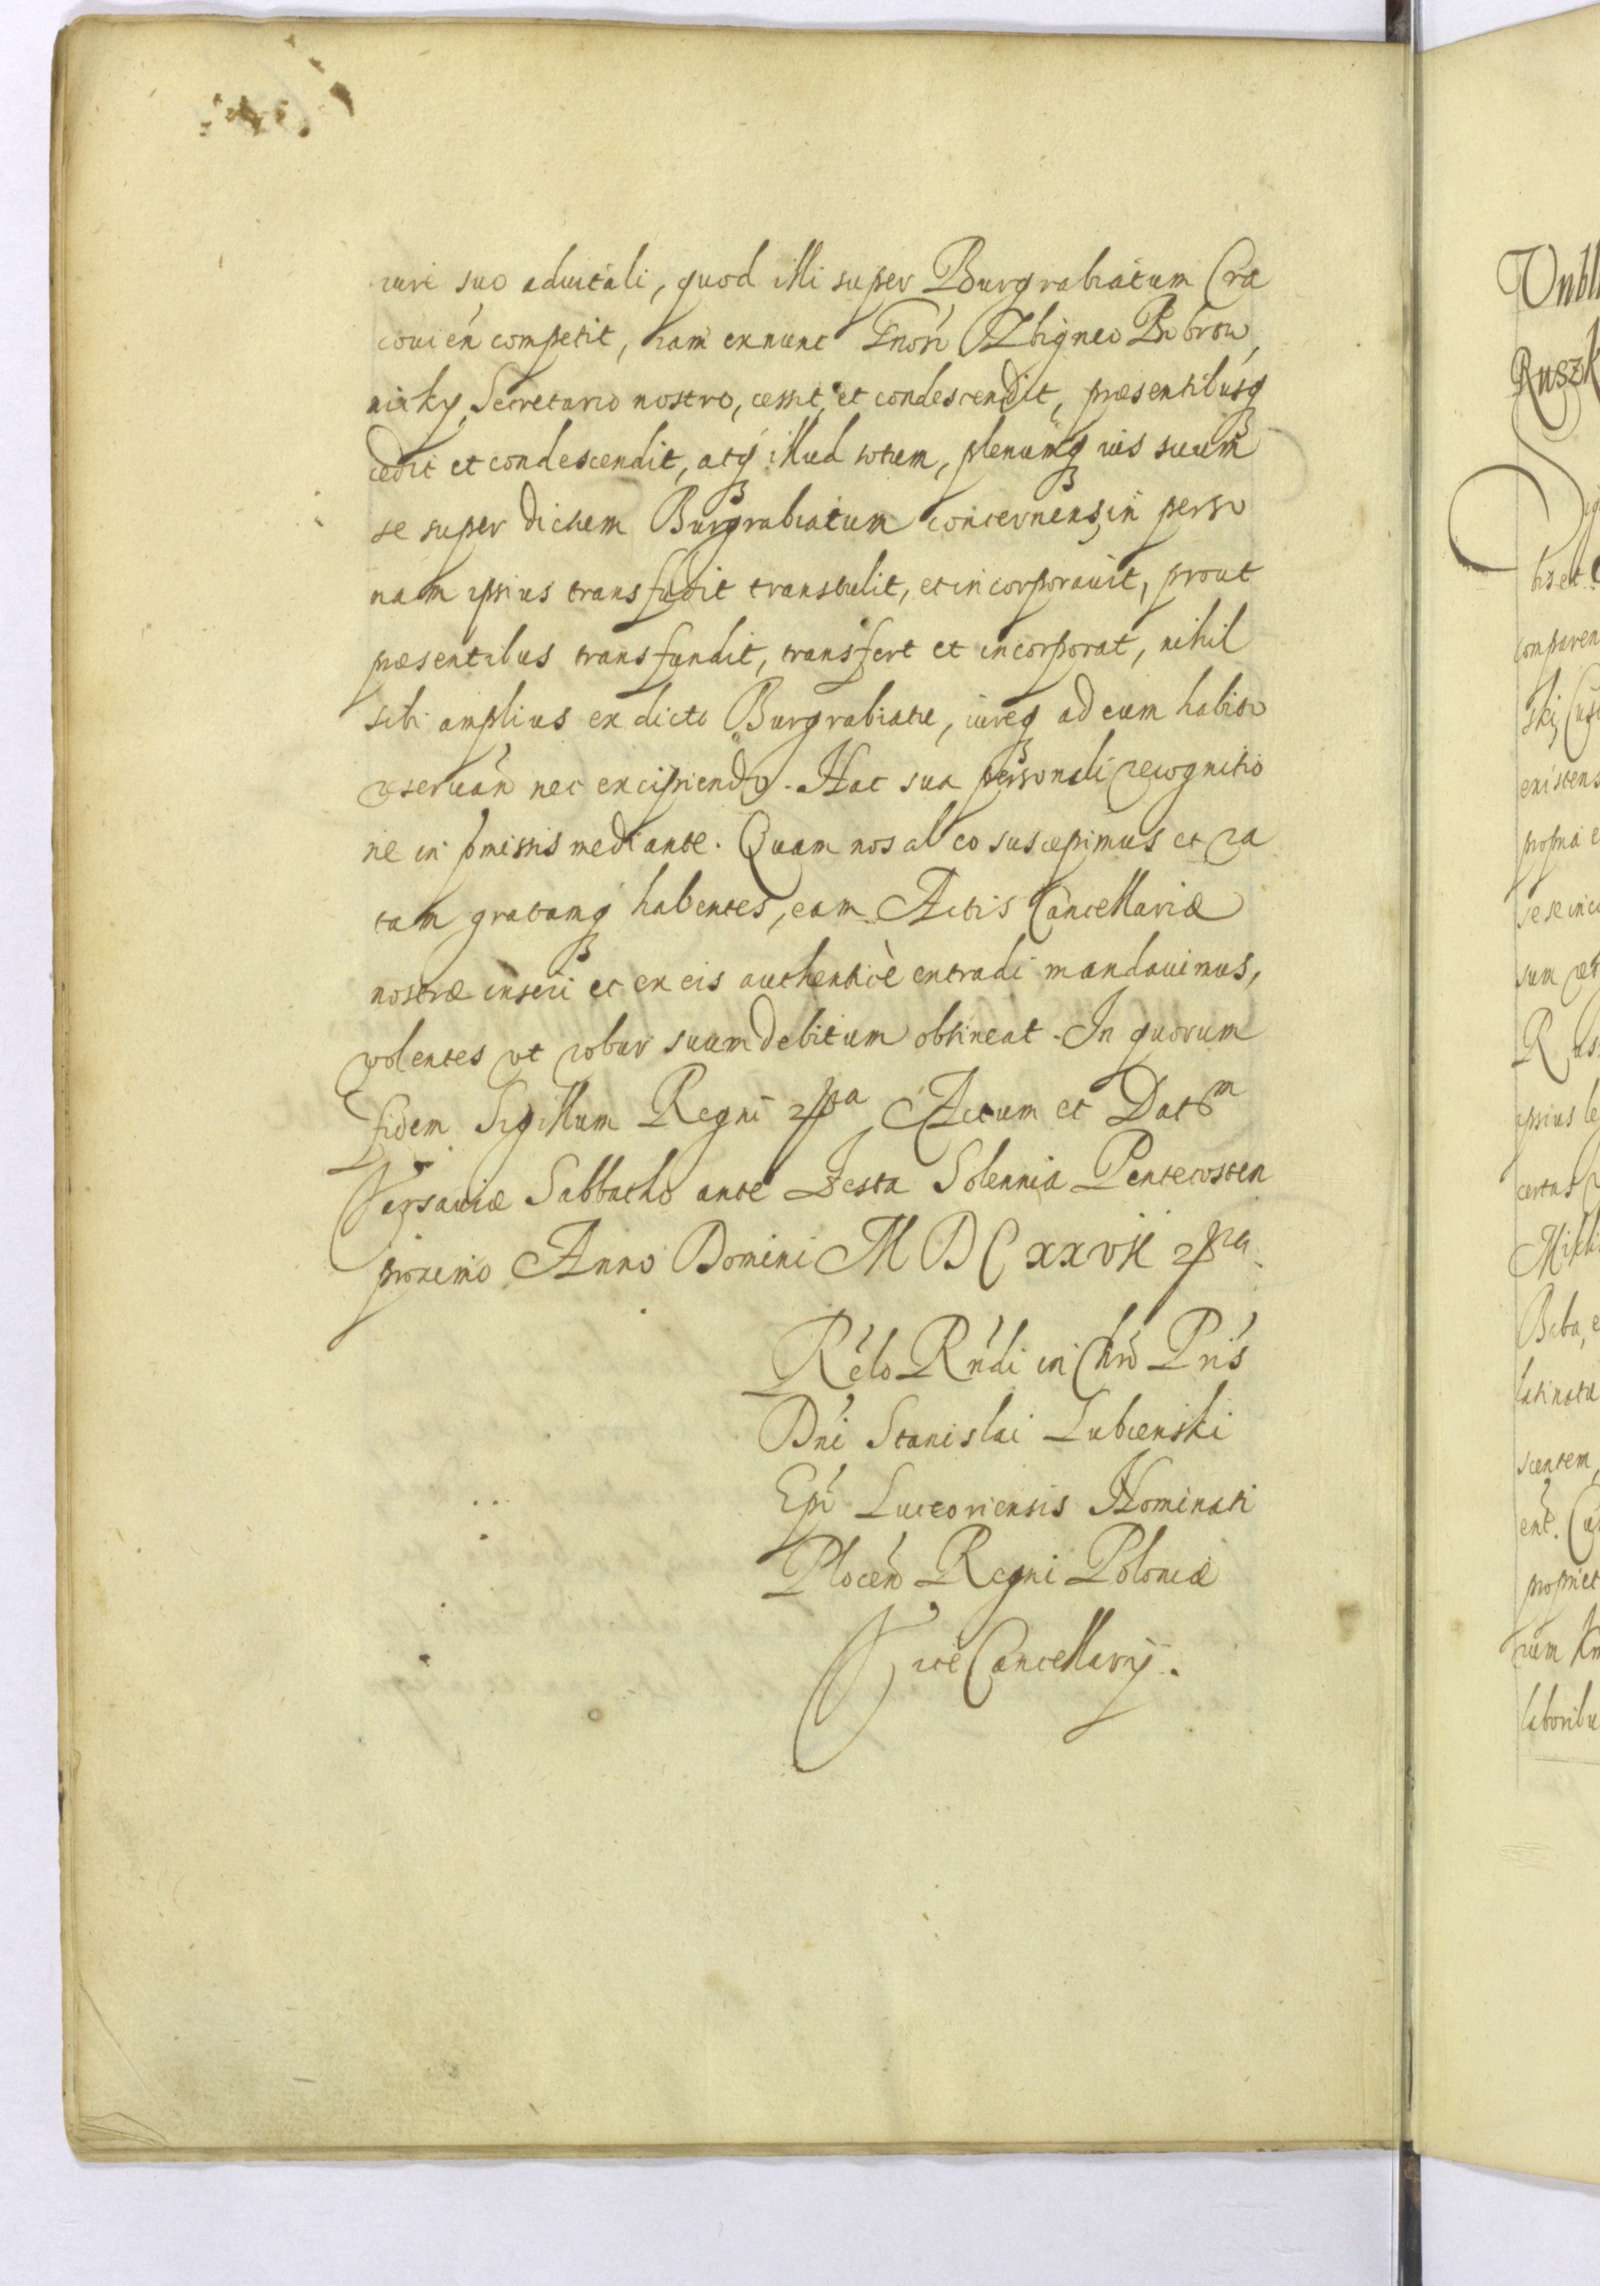 iuri suo aduitali, quod illi super Burgrabiatum Cra
couien competit, iam ex nunc Gnoso Zbigneo Bobrow,
nicky, Secretario nostro, cessit et condescendit, præsentibusq
cedit et condescendit, atq illud totum, plenumq ius suum
se super dictum Burgrabiatum concernens, in perso
nam ipsius transfudit transtulit, et incorporauit, prout
præsentibus transfundit, transfert et incorporat, nihil
sibi amplius ex dicto Burgrabiatu, iureq ad eum habito
reseruan nec excipiendo. Hac sua personali recognitio
ne in pmissis mediante. Quam nos ab eo suscepimus et ra
tam gratamq habentes, eam Actis Cancellariæ
nostræ inseri et ex eis authenticè extradi mandauimus,
volentes vt robur suum debitum obtineat. In quorum
fidem Sigillum Regni Actum et Datum
Varsauiæ Sabbatho ante Festa Solennia Pentecosten
proximo Anno Domini M D C xxvii
Relo Rndi in Chro Pris
Dni Stanislai Lubienski
Epi Luceoriensis Nominati
Plocen Regni Poloniæ
Vice Cancellarij.
Ruszk
comparen
ski, Cust
existens
propria e
sese in co
sum
R us
ipsius le
certas
Mikli
Biba, e
latinatu
scentem,
ent. Cu
propriet
rum Kn
laboribu